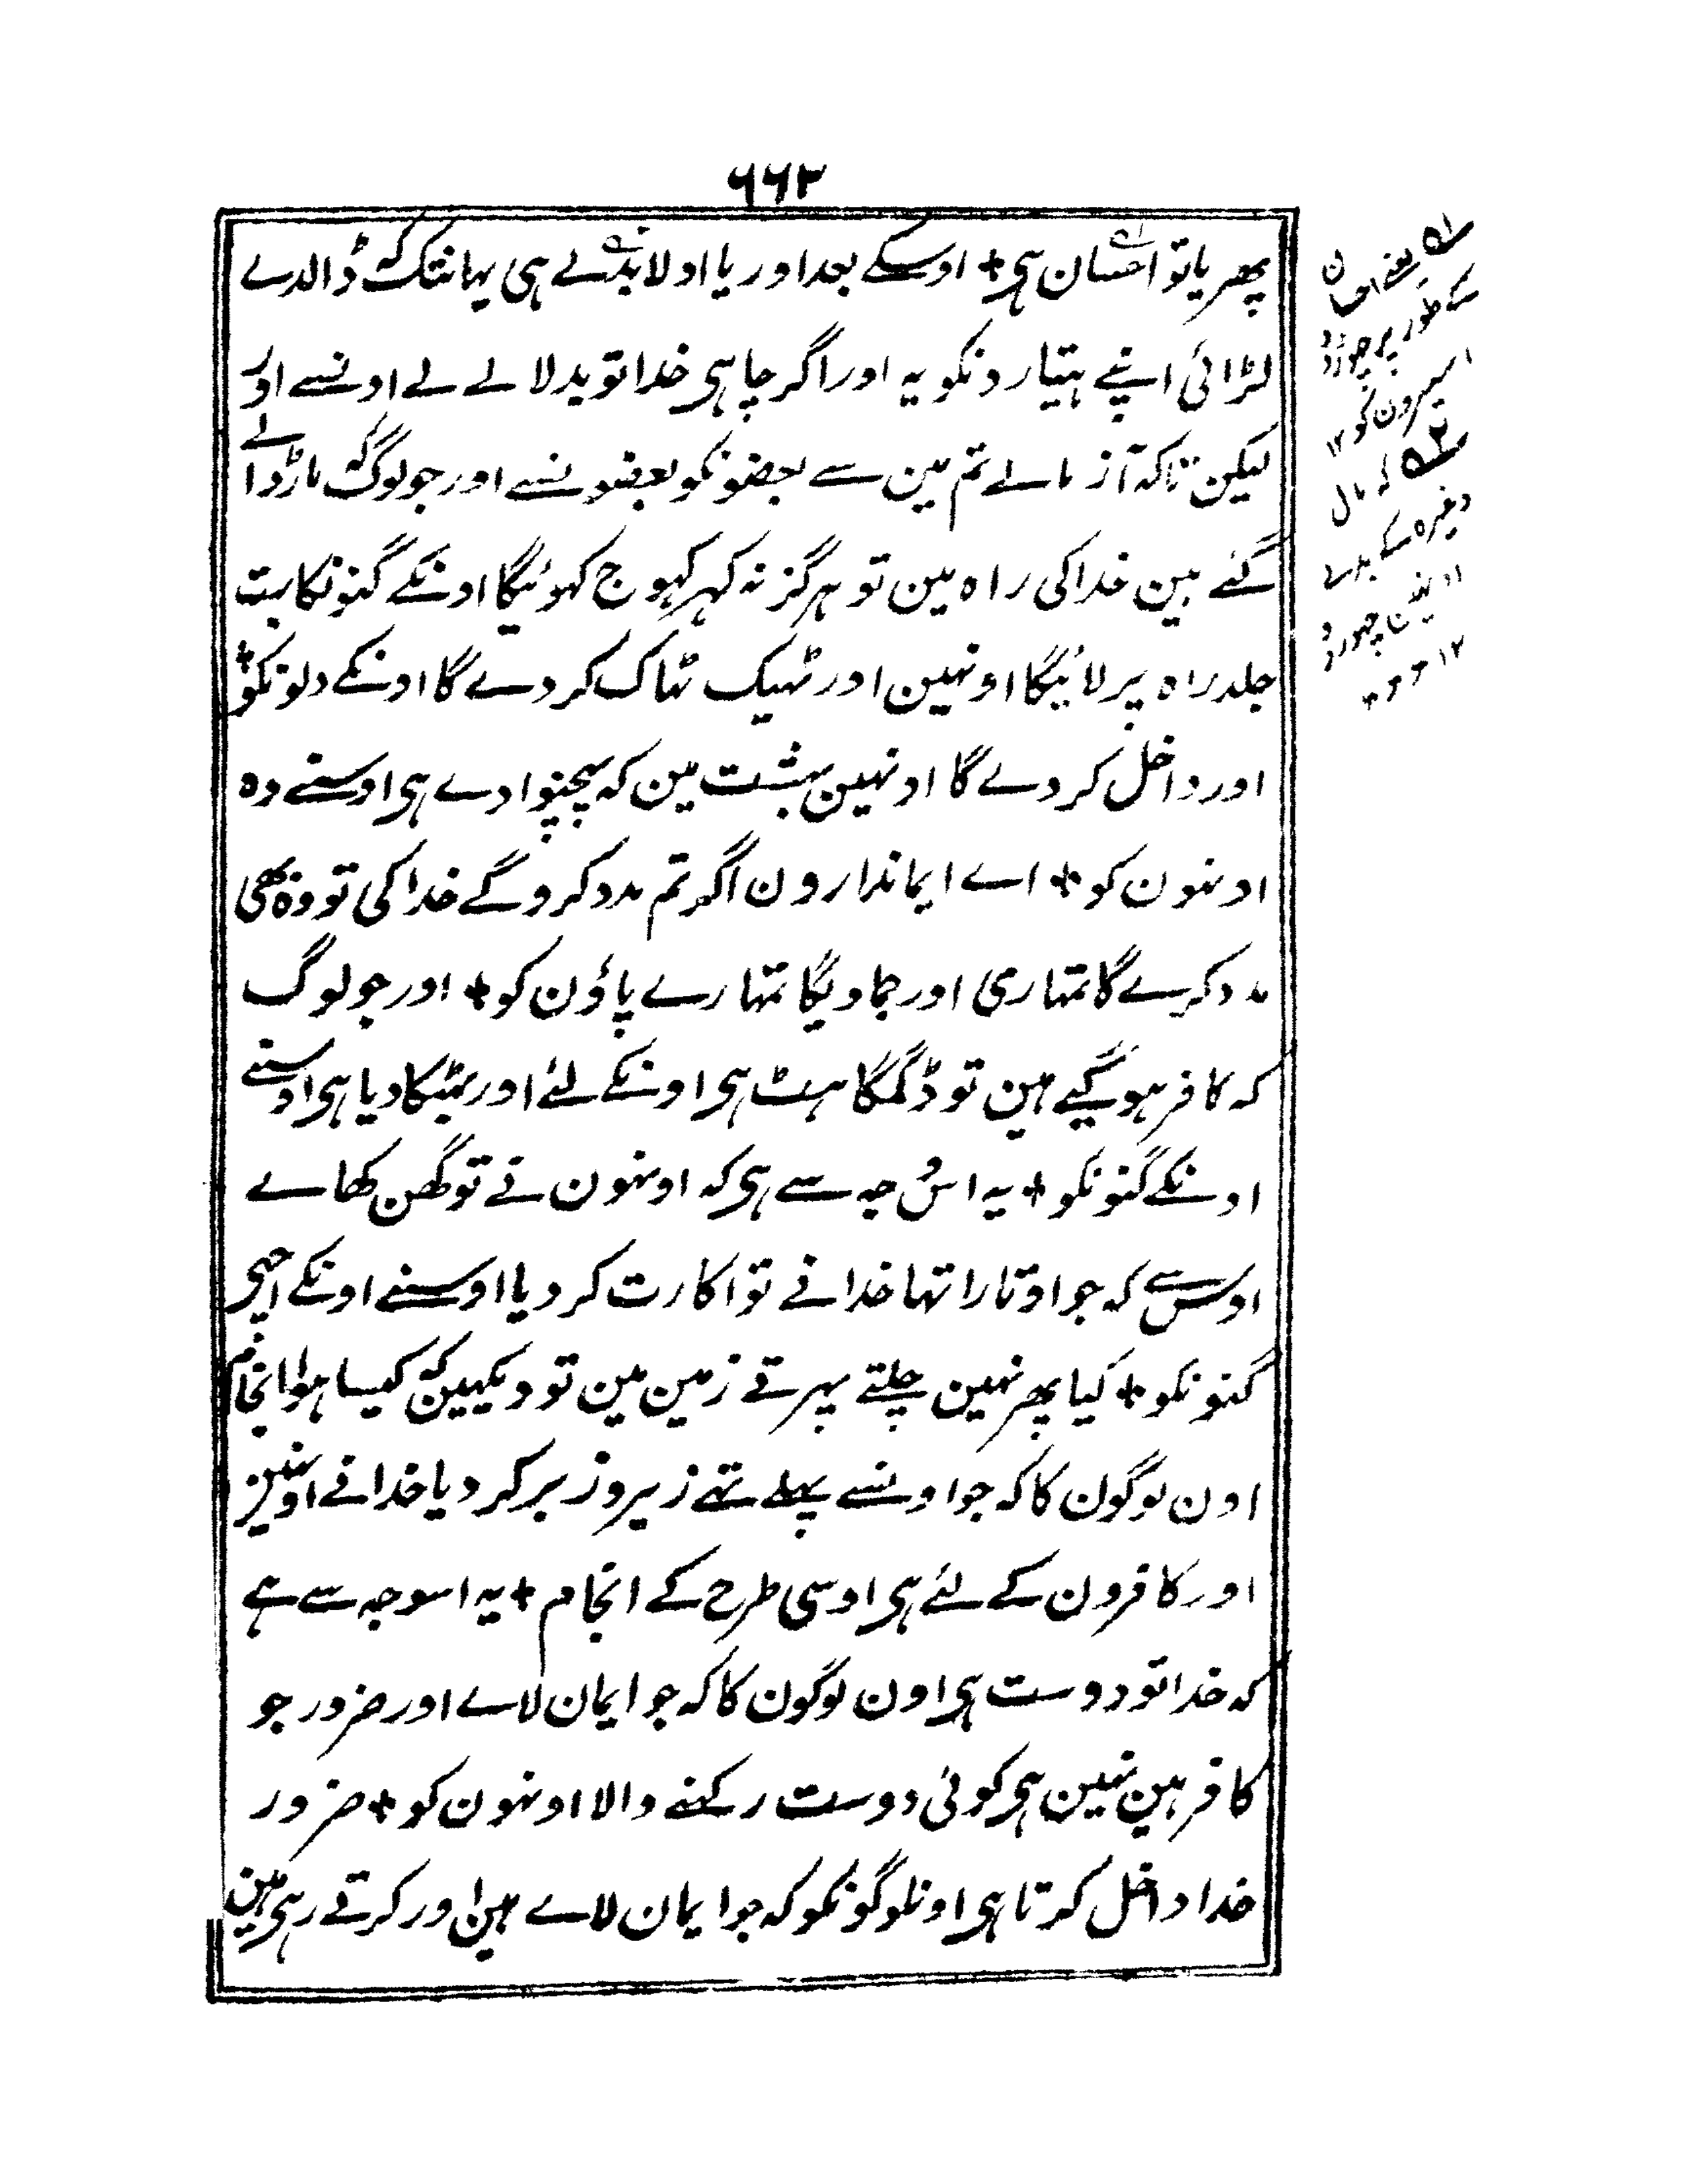 ۶۶۳
پھر یا تو احسان ہی + اوسکے بعد اور یا اولا بدلے ہی یہانتک کہ ڈالدے
لڑائی اپنے ہتیارونکو یہ اور اگر چاہی خدا تو بدلا لے لے اونسے اور
لیکن تاکہ آزمالے تم مین سے بعضونکو بعضونسے اور جو لوگ کہ مار ڈالے
گئے ہین خدا کی راہ مین تو ہرگز نہ کہر کہوج کہوئیگا اونکے گنونکا بت
جلد راہ پر لائیگا اونہین اور ٹہیک ٹہاک کر دے گا اونکے دلونکو +
اور داخل کر دے گا اونہین بہشت مین کہ پچنوا دے ہی اوسنے وہ
اونہون کو + اے ایماندارون اگر تم مدد کروگے خدا کی تو وہ بھی
مدد کرے گا تمہاری اور جماویگا تمہارے پاؤن کو + اور جو لوگ
کہ کافر ہوگیے ہین تو ڈگمگاہٹ ہی اونکے لئے اور بھٹکا دیا ہی اوسنے
اونکے گنونکو + یہ اس وجہ سے ہی کہ اونہون نے تو گھن کھاے
اوس سے کہ جو اوتارا تہا خدا نے تو اکارت کر دیا اوسنے اونکے اچہی
گنونکو + کیا پھر نہین چلتے پہرتے زمین مین تو دیکہین کہ کیسا ہوا انجام
اون لوگون کا کہ جو اونسے پہلے تہے زیر و زبر کر دیا خدا نے اونہین
اور کافرون کے لئے ہی اوسی طرح کے انجام + یہ اسوجہ سے ہے
کہ خدا تو دوست ہی اون لوگون کا کہ جو ایمان لاے اور ضرور جو
کافر ہین نہین ہی کوئی دوست رکہنے والا اونہون کو + ضرور
خدا داخل کرتا ہی اونلوگونکو کہ جو ایمان لاے ہین اور کرتے رہی ہین
یعنے احسان
کے طور پر چہوڑ دو
اسیرون کو ۱۲
کہ مال
وغیرہ کے بدلے
اونہین چہوڑ دو
۱۲